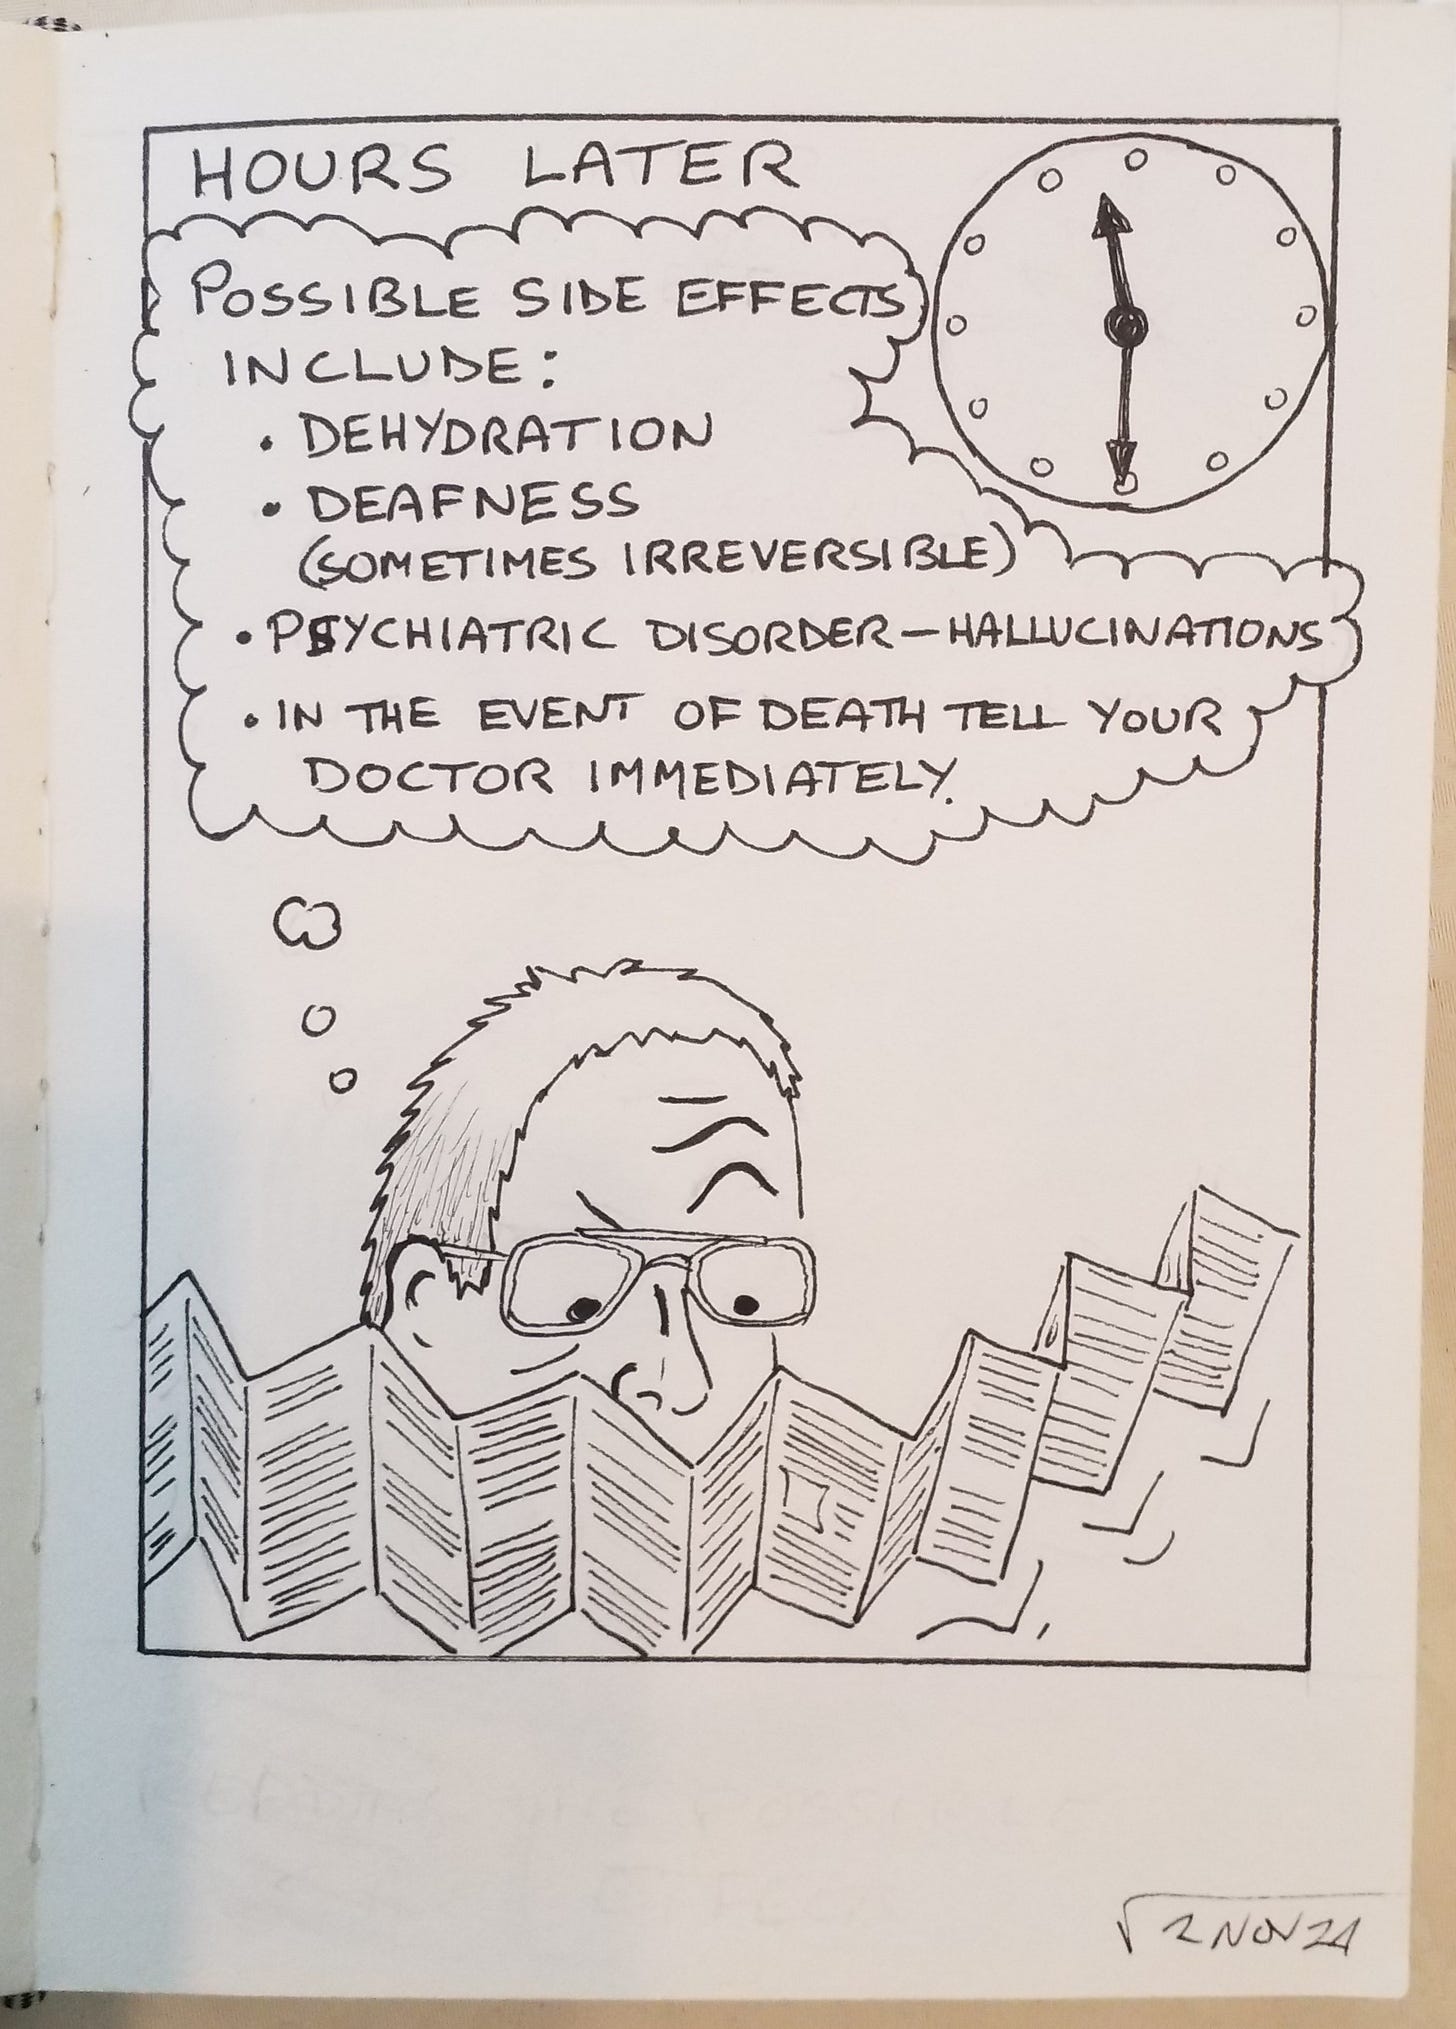 HOURS LATER
POSSIBLE SIDE EFFECTS
INCLUDE:
• DEHYDRATION
• DEAFNESS
(SOMETIMES IRREVERSIBLE)
• PSYCHIATRIC DISORDER – HALLUCINATIONS
• IN THE EVENT OF DEATH TELL YOUR
DOCTOR IMMEDIATELY.
√2 NOV 24